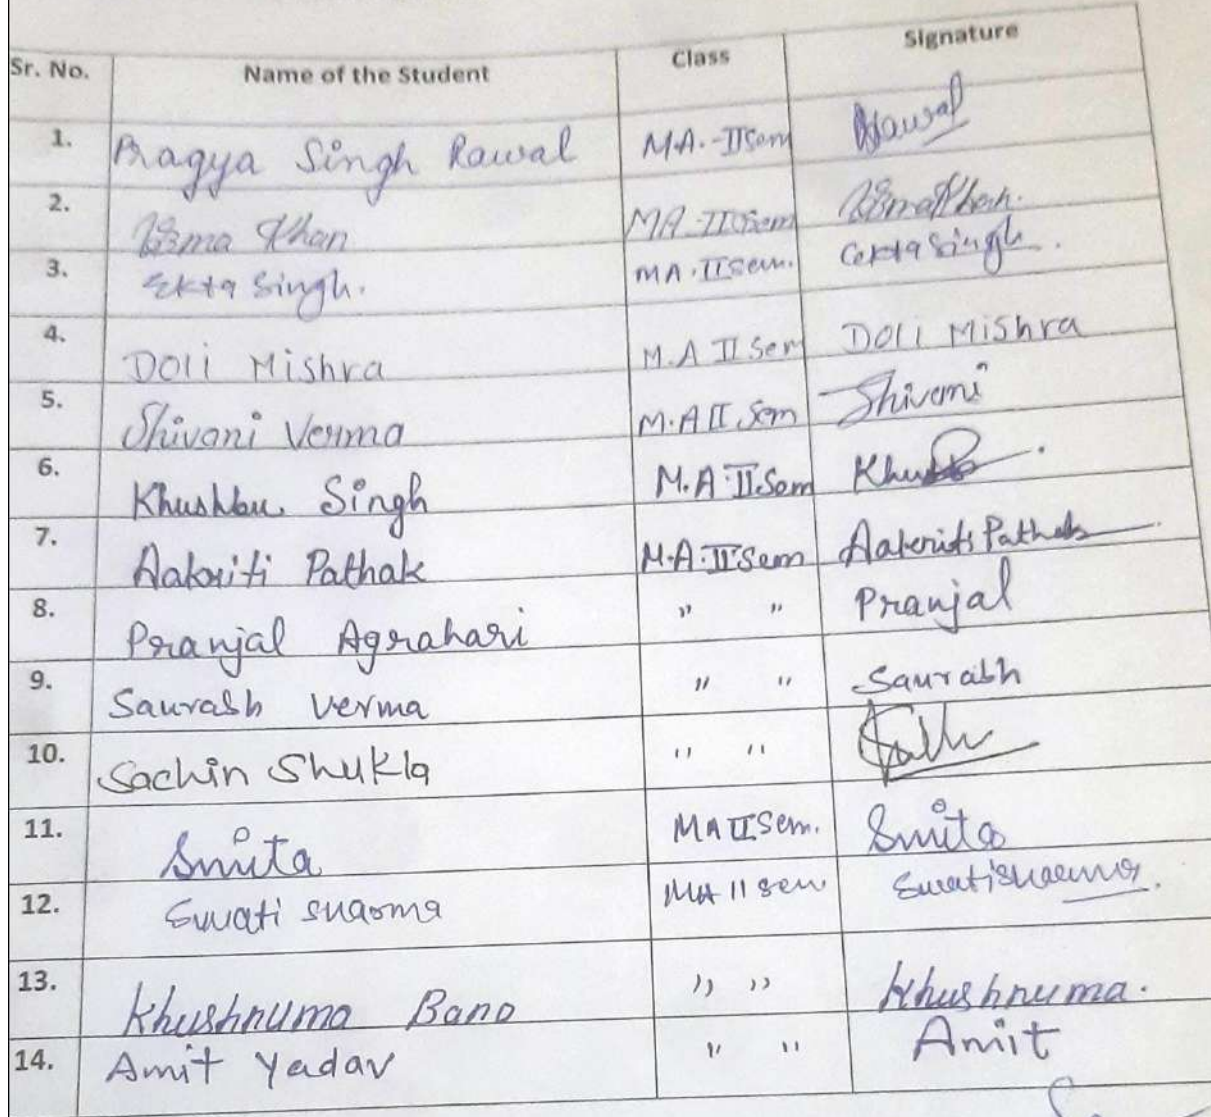 Sr. No. Name of the Student Class Signature
1. Pragya Singh Rawal M.A.-IISem Rawal
2. Uzma Khan MA-IISem Uzma Khan.
3. Ekta Singh. MA.IISem. Ekta Singh.
4. Doli Mishra M.A II Sem Doli Mishra
5. Shivani Verma M.A II Sem Shivani
6. Khushbu Singh M.A.II.Sem
7. Aakriti Pathak M.A.II Sem Aakriti Pathak
8. Pranjal Agrahari " " Pranjal
9. Saurabh Verma " " Saurabh
10. Sachin Shukla " "
11. Smita MA II Sem. Smita
12. Swati Sharma MA II Sem Swati Sharma.
13. Khushnuma Bano " " Khushnuma.
14. Amit Yadav " " Amit